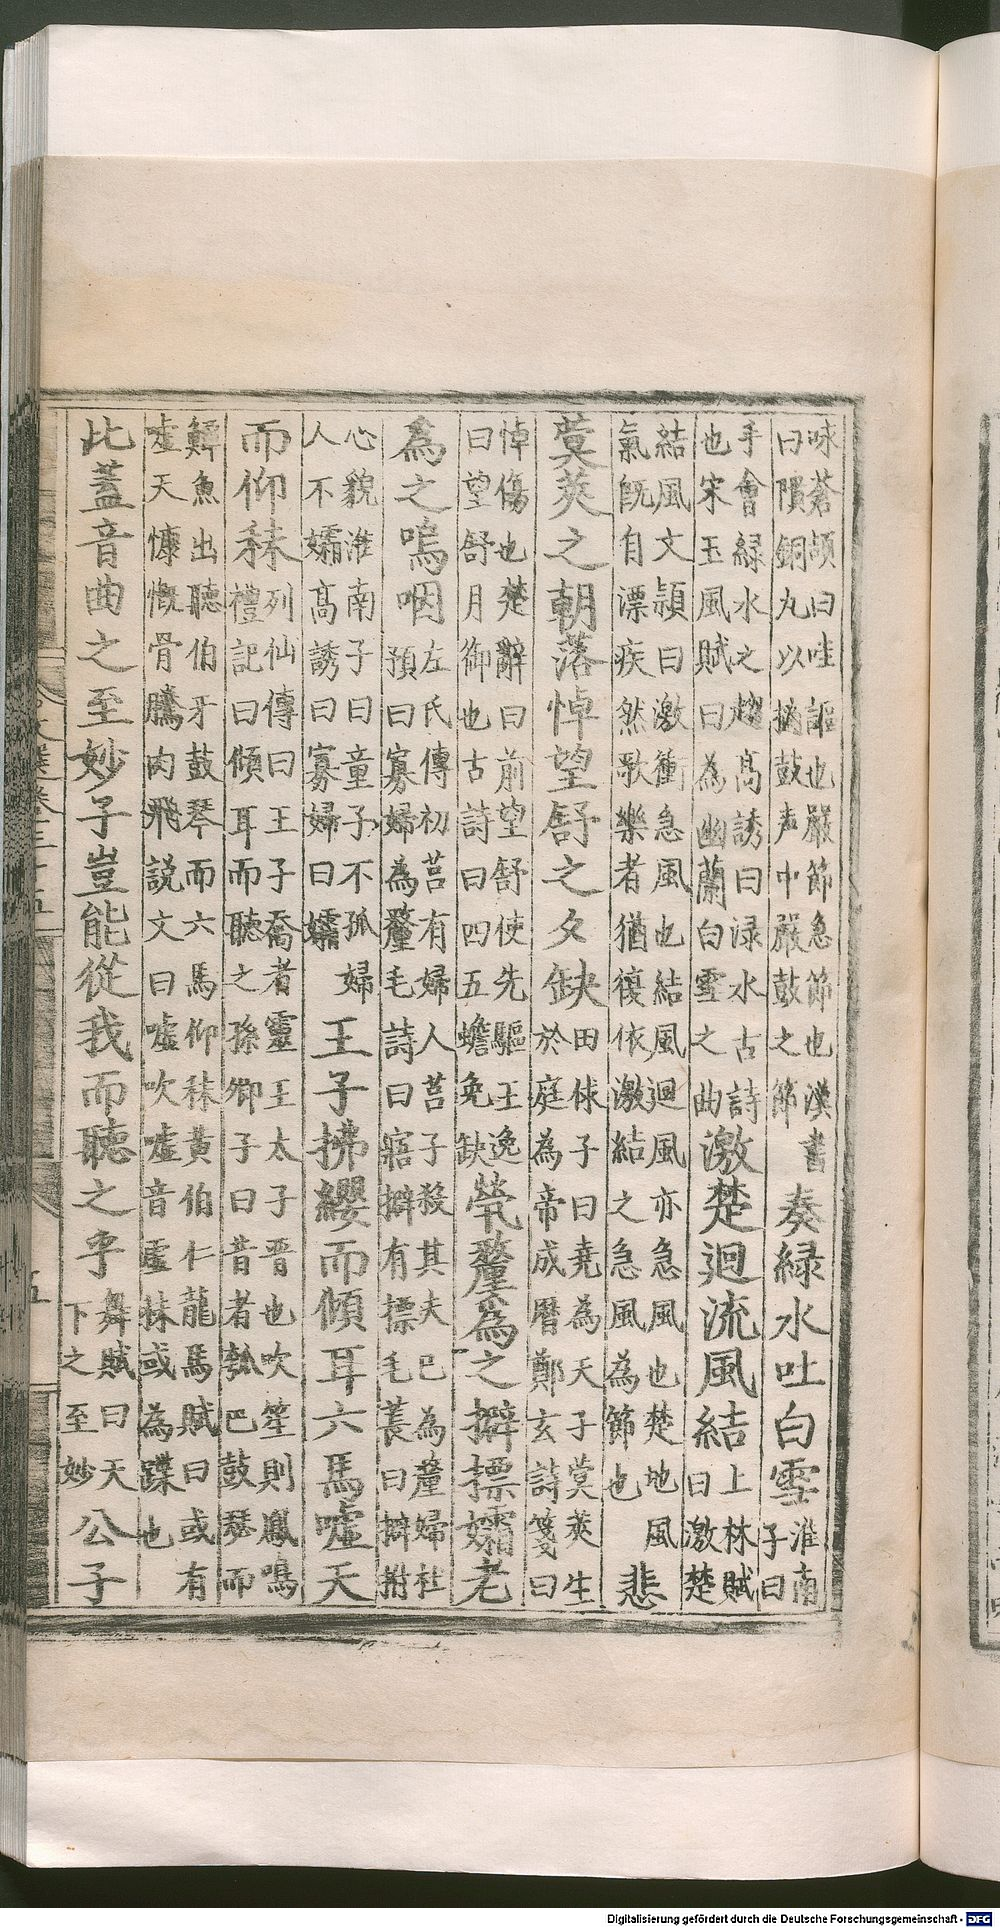 咏蒼頡曰哇謳也嚴節急節也漢書
曰隕銅九以擿鼓声中嚴鼓之節
奏緑水吐白雪
淮南
子曰
手會緑水之趨高誘曰渌水古詩
也宋玉風賦曰為幽蘭白雪之曲
激楚迴流風結
上林賦
曰激楚
結風文頴曰激衝急風也結風迴風亦急風也楚地風
氣既自漂疾然歌樂者猶復依激結之急風為節也
悲
蓂莢之朝落悼望舒之夕缺
田俅子曰堯為天子蓂莢生
於庭為帝成曆鄭玄詩箋曰
悼傷也楚辭曰前望舒使先驅王逸
曰望舒月御也古詩曰四五蟾兔缺
煢釐為之擗摽孀老
為之嗚咽
左氏傳初莒有婦人莒子殺其夫巳為釐婦杜
預曰寡婦為釐毛詩曰寤擗有摽毛萇曰擗拊
心貌淮南子曰童子不孤婦
人不孀高誘曰寡婦曰孀
王子拂纓而傾耳六馬噓天
而仰秣
列仙傳曰王子喬者靈王太子晋也吹笙則鳳鳴
禮記曰傾耳而聽之孫卿子曰昔者瓠巴鼓瑟而
鱏魚出聽伯牙鼓琴而六馬仰秣黄伯仁龍馬賦曰或有
噓天慷慨骨騰肉飛説文曰噓吹噓音虛秣或為蹀也
此蓋音曲之至妙子豈能從我而聽之乎
舞賦曰天
下之至妙
公子
文選卷三十五
五
Digitalisierung gefördert durch die Deutsche Forschungsgemeinschaft - DFG